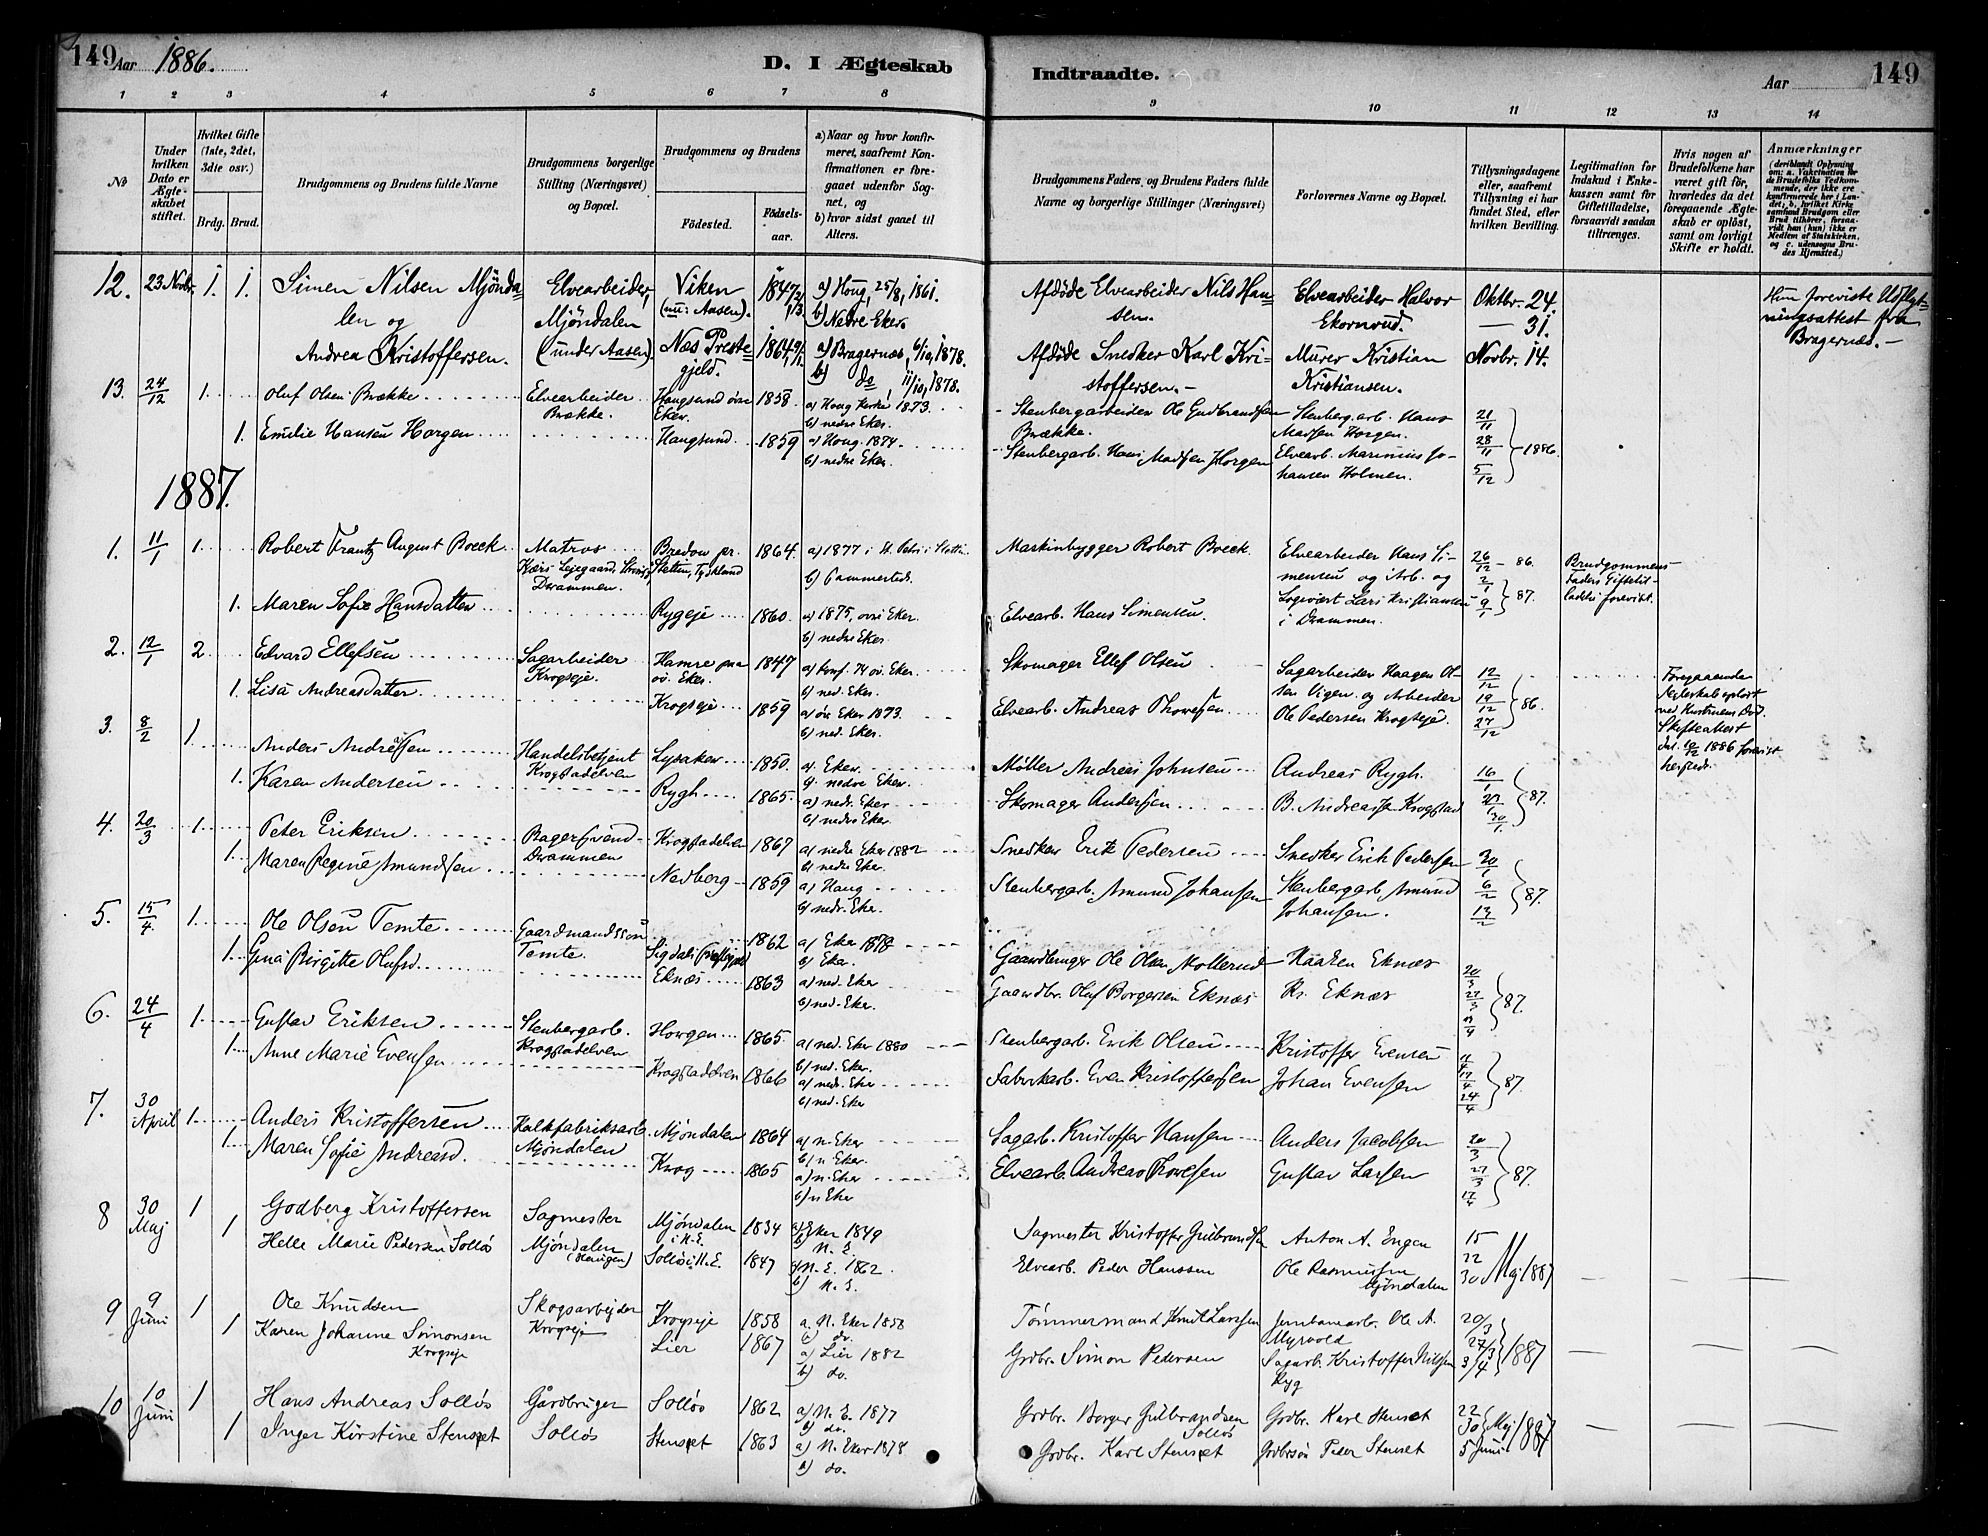 149 Aar 1886. D. I Ægteskab Indtraadte. Aar 149
1 2 3 4 5 6 7 8 9 10 11 12 13 14
No
Under hvilken Dato er Ægteskabet stiftet.
Hvilket Gifte (1ste, 2det, 3die osv.)
Brdg. Brud.
Brudgommens og Brudens fulde Navne
Brudgommens borgerlige Stilling (Næringsvei) og Bopæl.
Brudgommens og Brudens
Födested. Födselsaar.
a) Naar og hvor konfirmeret, saafremt Konfirmationen er foregaaet udenfor Sognet, og
b) hvor sidst gaaet til Alters.
Brudgommens Faders og Brudens Faders fulde Navne og borgerlige Stillinger (Næringsvei)
Forlovernes Navne og Bopæl.
Tillysningsdagene eller, saafremt Tillysning ei har fundet Sted, efter hvilken Bevilling.
Legitimation for Indskud i Enkekassen samt for Giftetilladelse, forsaavidt saadan tiltrænges.
Hvis nogen af Brudefolkene har været gift för, hvorledes da det foregaaende Ægteskab er oplöst, samt om lovligt Skifte er holdt.
Anmærkninger
(deriblandt Oplysning om: a. Vakcination for de Brudefolks Vedkommende, der ikke ere konfirmerede her i Landet; b. hvilket Kirkesamfund Brudgom eller Brud tilhörer, forsaavidt han (hun) ikke er Medlem af Statskirken, og c. udensogns Brudes Hjemsted.)
12. 23 Novbr. 1. 1. Simen Nilsen Mjøndalen og Elvearbeider, Mjøndalen (under Aasen). Viken (nu: Aasen). 1847 a) Houg, 25/8, 1861. b) Nedre Eker. Afdøde Elvearbeider Nils Hansen. Elvearbeider Halvor Ekornrud. Oktbr. 24. — 31. Hun foreviste Udflytningsattest fra Bragernæs. —
Andrea Kristoffersen. Næs Prestegjeld. 1864 a) Bragernæs, 6/10, 1878. b) do 11/10, 1878. Afdøde Snedker Karl Kristoffersen. — Murer Kristian Kristiansen. Novbr. 14.
13. 24/12 1. Oluf Olsen Brække Elvearbeider Brække. Haugsund øvre Eker. 1858. a) Houg Kirke 1873. b) nedre Eker. Stenbergarbeider Ole Gudbrandsen Brække. Stenbergarb. Hans Madsen Horgen. 21/11 28/11 5/12 1886.
1. Emilie Hansen Horgen Haugsund 1859 a) Houg. 1874. b) nedre Eker. Stenbergarb. Hans Madsen Horgen Elvearb. Marinius Johansen Holmen.
1887.
1. 11/1 1. Robert Frantz August Boeck Matros Drammen. Bredow pr. Stettin, Tyskland 1864. a) 1877 i St. Petri i Stettin b) Sammesteds. Maskinbygger Robert Boeck. Elvearbeider Hans Simensen og Arb. og Logivært Lars Kristiansen i Drammen. 26/12 – 86. 2/1 9/1 87. Brudgommens Faders Giftetilladelse forevist.
1. Maren Sofie Hansdatter Rygeje 1860. a) 1875, øvre Eker. b) nedre Eker. Elvearb. Hans Simensen.
2. 12/1 2. Edvard Ellefsen Sagarbeider Krogseje. Hamre paa øv. Eker. 1847 a) konf. øv. Eker. b) ned. Eker. Skomager Ellef Olsen Sagarbeider Haagen Olsen Vigen og Arbeider Ole Pedersen Krogseje. 12/12 19/12 27/12 86. Foregaaende Ægteskab opløst ved Kustruens Død. Skifteattest dat. 10/12 1886 forevist
1. Lisa Andreasdatter Krogseje 1859 a) øvr Eker 1873. b) ned. Eker. Elvearb. Andreas Thowesen
3. 8/2 1. Anders Andreasen Handelsbetjent Krogstadelven Lysaker 1850. a) Eker. b) nedre Eker. Møller Andreas Johnsen Andreas Rygh. 16/1 27/1 30/1. 87.
1. Karen Andersen Rygh 1865. a) nedr. Eker b) nedre Eker. Skomager Andersen B. Andreasen Krogstad
4. 20/3 1. Peter Eriksen Bagersvend Drammen Krogstadelven 1867 a) nedre Eker 1882 b) nedre Eker. Snedker Erik Pedersen Snedker Erik Pedersen 30/1 6/2 13/2 87.
1. Maren Regine Amundsen Nedberg 1859 a) Haug b) nedr. Eker. Stenbergarb. Amund Johansen Stenbergarb. Amund Johansen.
5. 15/4. 1. Ole Olsen Temte Gaardmandssøn Temte. Sigdal 1862 a) Eker 1878 b) Eker. Gaardbruger Ole Olsen Mollerud Haaken Eknæs 20/3 27/3 87.
1. Gina Birgitte Olufsd. Eknæs 1863 a) ned. Eker b) ned. Eker. Gaardbr. Oluf Borgersen Eknæs Kr. Eknæs
6. 24/4 1. Gustav Eriksen Stenbergarb. Krogstadelven Horgen 1865. a) ned. Eker 1880 b) ned. Eker. Stenbergarb. Erik Olsen Kristoffer Evensen 17/4 24/4 87.
1. Anne Marie Evensen Krogstadelven 1866 a) ned. Eker b) ned. Eker Fabrikarb. Even Kristoffersen Johan Evensen
7. 30 April 1. Anders Kristoffersen Kalkfabriksarb. Mjøndalen Mjøndalen 1864 a) n. Eker b) n. Eker. Sagarb. Kristoffer Hansen Anders Jacobsen 20/3 27/3 17/4 87.
1. Maren Sofie Andreasd. Krog 1865 a) n. Eker b) n Eker Elvearb. Andreas Thowesen Gustav Larsen
8 30 Maj 1 Godberg Kristoffersen Sagmester Mjøndalen Mjøndalen i N. E. 1834 a) Eker 1849 b) N. E. Sagmester Kristoffer Gulbrandsen Anton A. Engen 15 22 30 Maj 1887 — — —
1 Helle Marie Pedersen Solløs Solløs i N. E. 1847 a) N. E. 1862. b) N. E. Elvearb. Peder Hanssen Ole Rasmussen Mjøndalen
9 9 Juni 1 Ole Knudsen Skogsarbejder Krogseje Krogseje 1858 a. N. Eker 1858 b) do. Tømmermand Knut Larssen Jernbanearb. Ole A. Myrvold 20/3 27/3 3/4 1887 — — —
1 Karen Johanne Simonsen Krogseje Lier 1867 a) Lier 1882 b) do. Grdbr. Simon Pedersen Sagarb. Kristoffer Nilsen Ryg
10 10 Juni 1 Hans Andreas Solløs Gårdbruger Solløs Solløs 1862 a) N. E. 1877 b) do. Grdbr. Borger Gulbrandsen Solløs Grdbr. Karl Stenset 22 30 Maj 5 Juni 1887 — — —
1 Inger Kirstine Stenset Stenset 1863 a) N. Eker 1878 b) do. Grdbr. Karl Stenset Grdbrsøn Peder Stenset